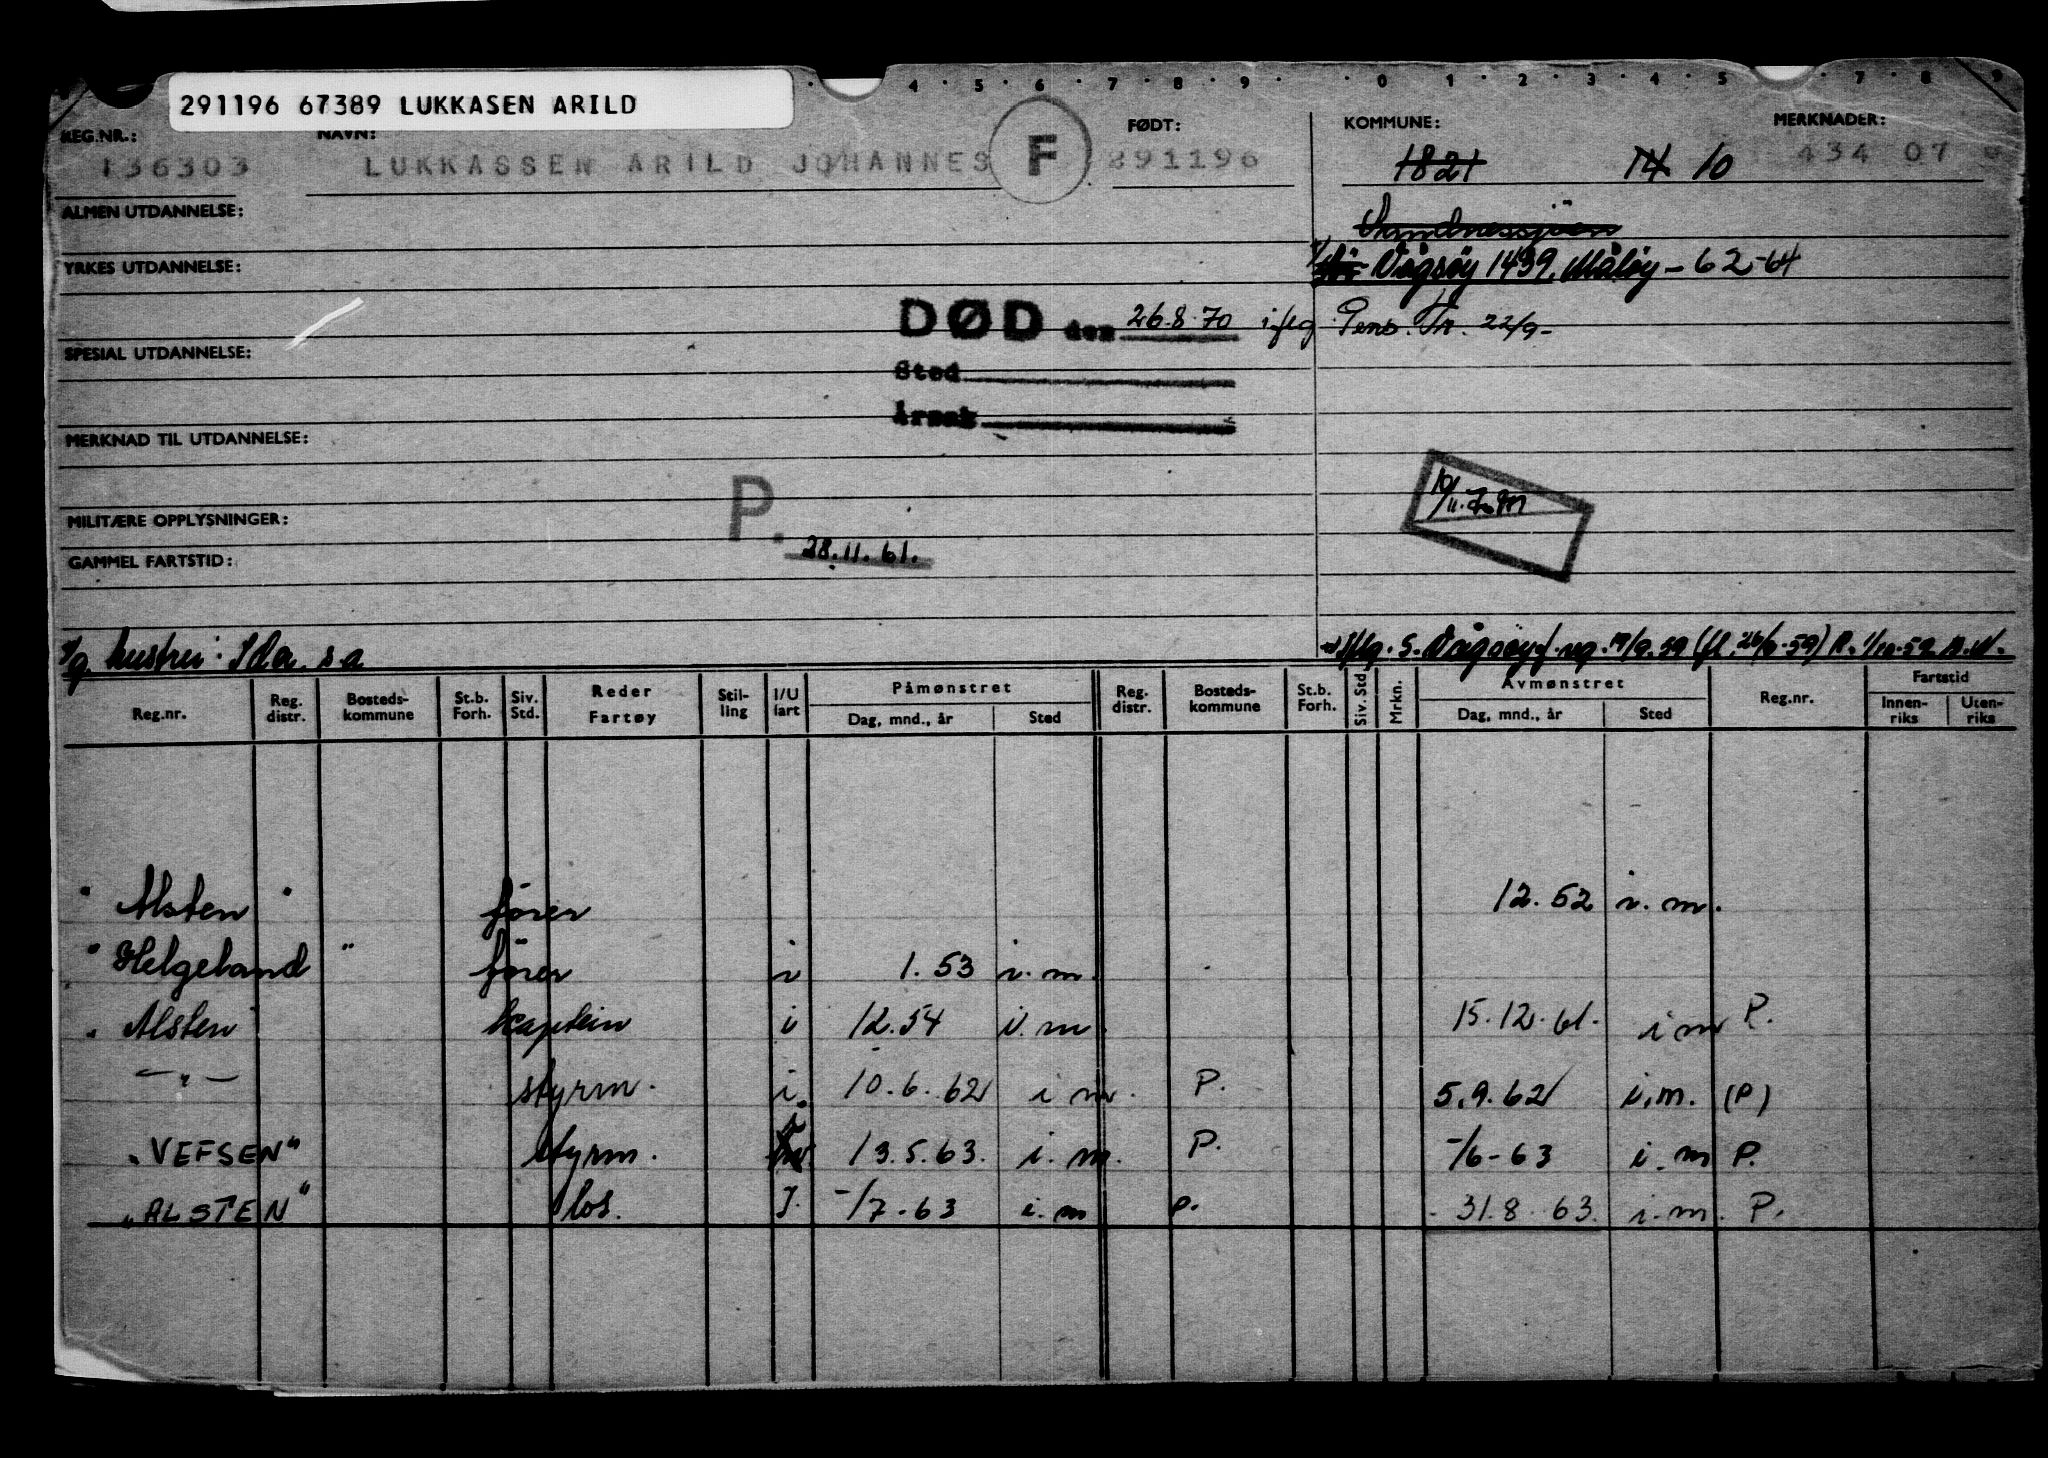 4 · 5 · 6 · 7 · 8 · 9 · · 0 · 1 · 2 · 3 · 4 · 5 · 7 · 8 · 9
291196 67389 LUKKASEN ARILD
REG.NR.: NAVN: FØDT: KOMMUNE: MERKNADER:
136303 LUKKASSEN ARILD JOHANNES F 291196 1821 14 10 434 07
ALMEN UTDANNELSE:
YRKES UTDANNELSE: Vågsøy 1439. Måløy - 62-64
DØD den 26.8.70 iflg. Pens. Tr. 22/9-
SPESIAL UTDANNELSE:
Sted
Årsak
MERKNAD TIL UTDANNELSE:
MILITÆRE OPPLYSNINGER: P.
28.11.61.
GAMMEL FARTSTID:
g. hustru: Ida, s.a.
Reg.nr. Reg. distr. Bosteds-kommune St.b. Forh. Siv. Std. Reder Fartøy Stil-ling I/U fart Påmønstret Dag, mnd., år Sted Reg. distr. Bosteds-kommune St.b. Forh. Siv. Std. Mrkn. Avmønstret Dag, mnd., år Sted Reg.nr. Fartstid Innen-riks Uten-riks
" Alsten " fører 12.52 i.m.
" Helgeland " fører i 1.53 i.m.
" Alsten kaptein i 12.54 i.m. 15.12.61. i m P.
— " — styrm. i. 10.6.62 i m. P. 5.9.62 i.m. (P)
"VEFSEN" styrm. 13.5.63. i.m. P. -/6-63 i.m P.
"ALSTEN" los. I. -/7-63 i.m P. 31.8.63. i.m. P.